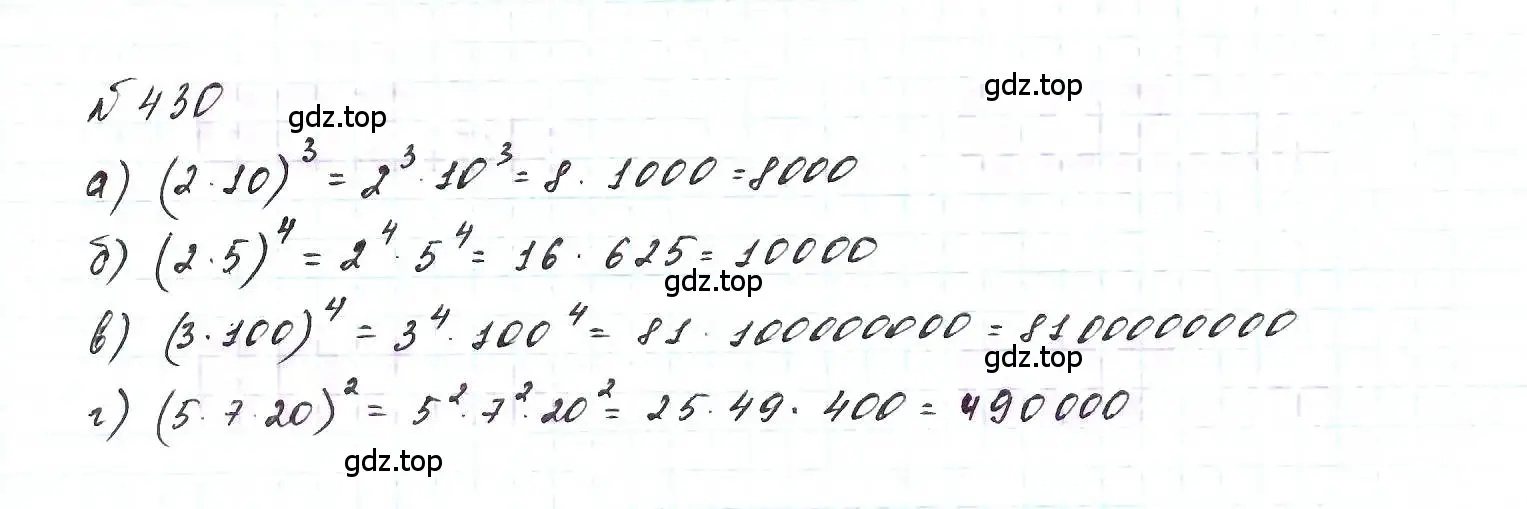 № 430
gdz.top
gdz.top
а) (2·10)³ = 2³·10³ = 8·1000 = 8000
б) (2·5)⁴ = 2⁴·5⁴ = 16·625 = 10000
gdz.top
в) (3·100)⁴ = 3⁴·100⁴ = 81·100000000 = 8100000000
gdz.top
г) (5·7·20)² = 5²·7²·20² = 25·49·400 = 490000
gdz.top